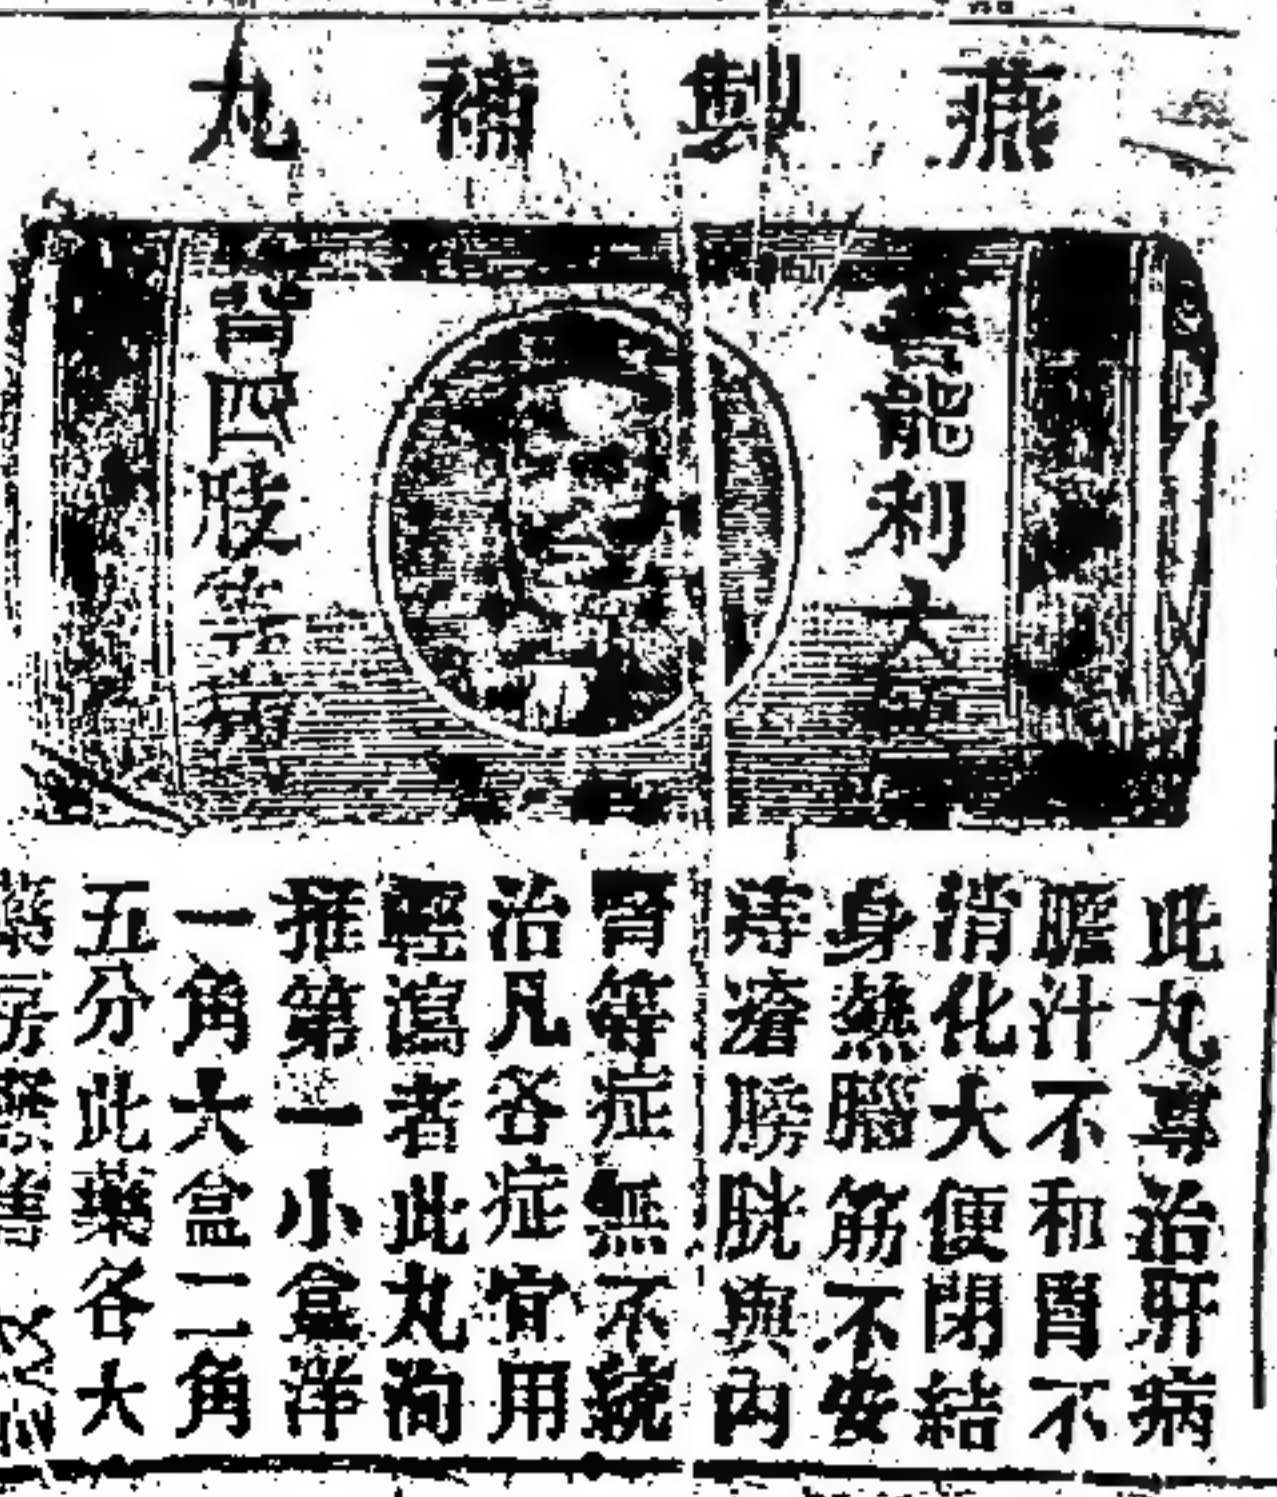 燕製補丸
能利大
四肢等
此丸專治肝病
膽汁不和胃不
消化大便閉結
身熱腦筋不安
痔瘡膀胱與內
腎等症無不統
治凡各症宜用
輕瀉者此丸洵
推第一小盒洋
一角大盒二角
五分此藥各大
藥房